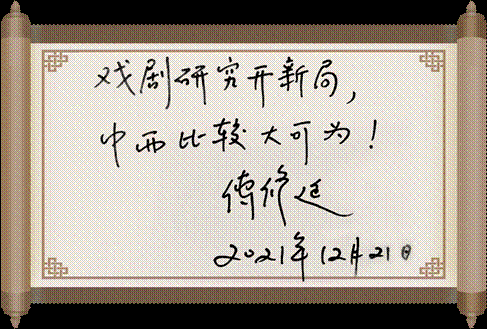 戏剧研究开新局，
中西比较大可为！
傅修延
2021年12月21日